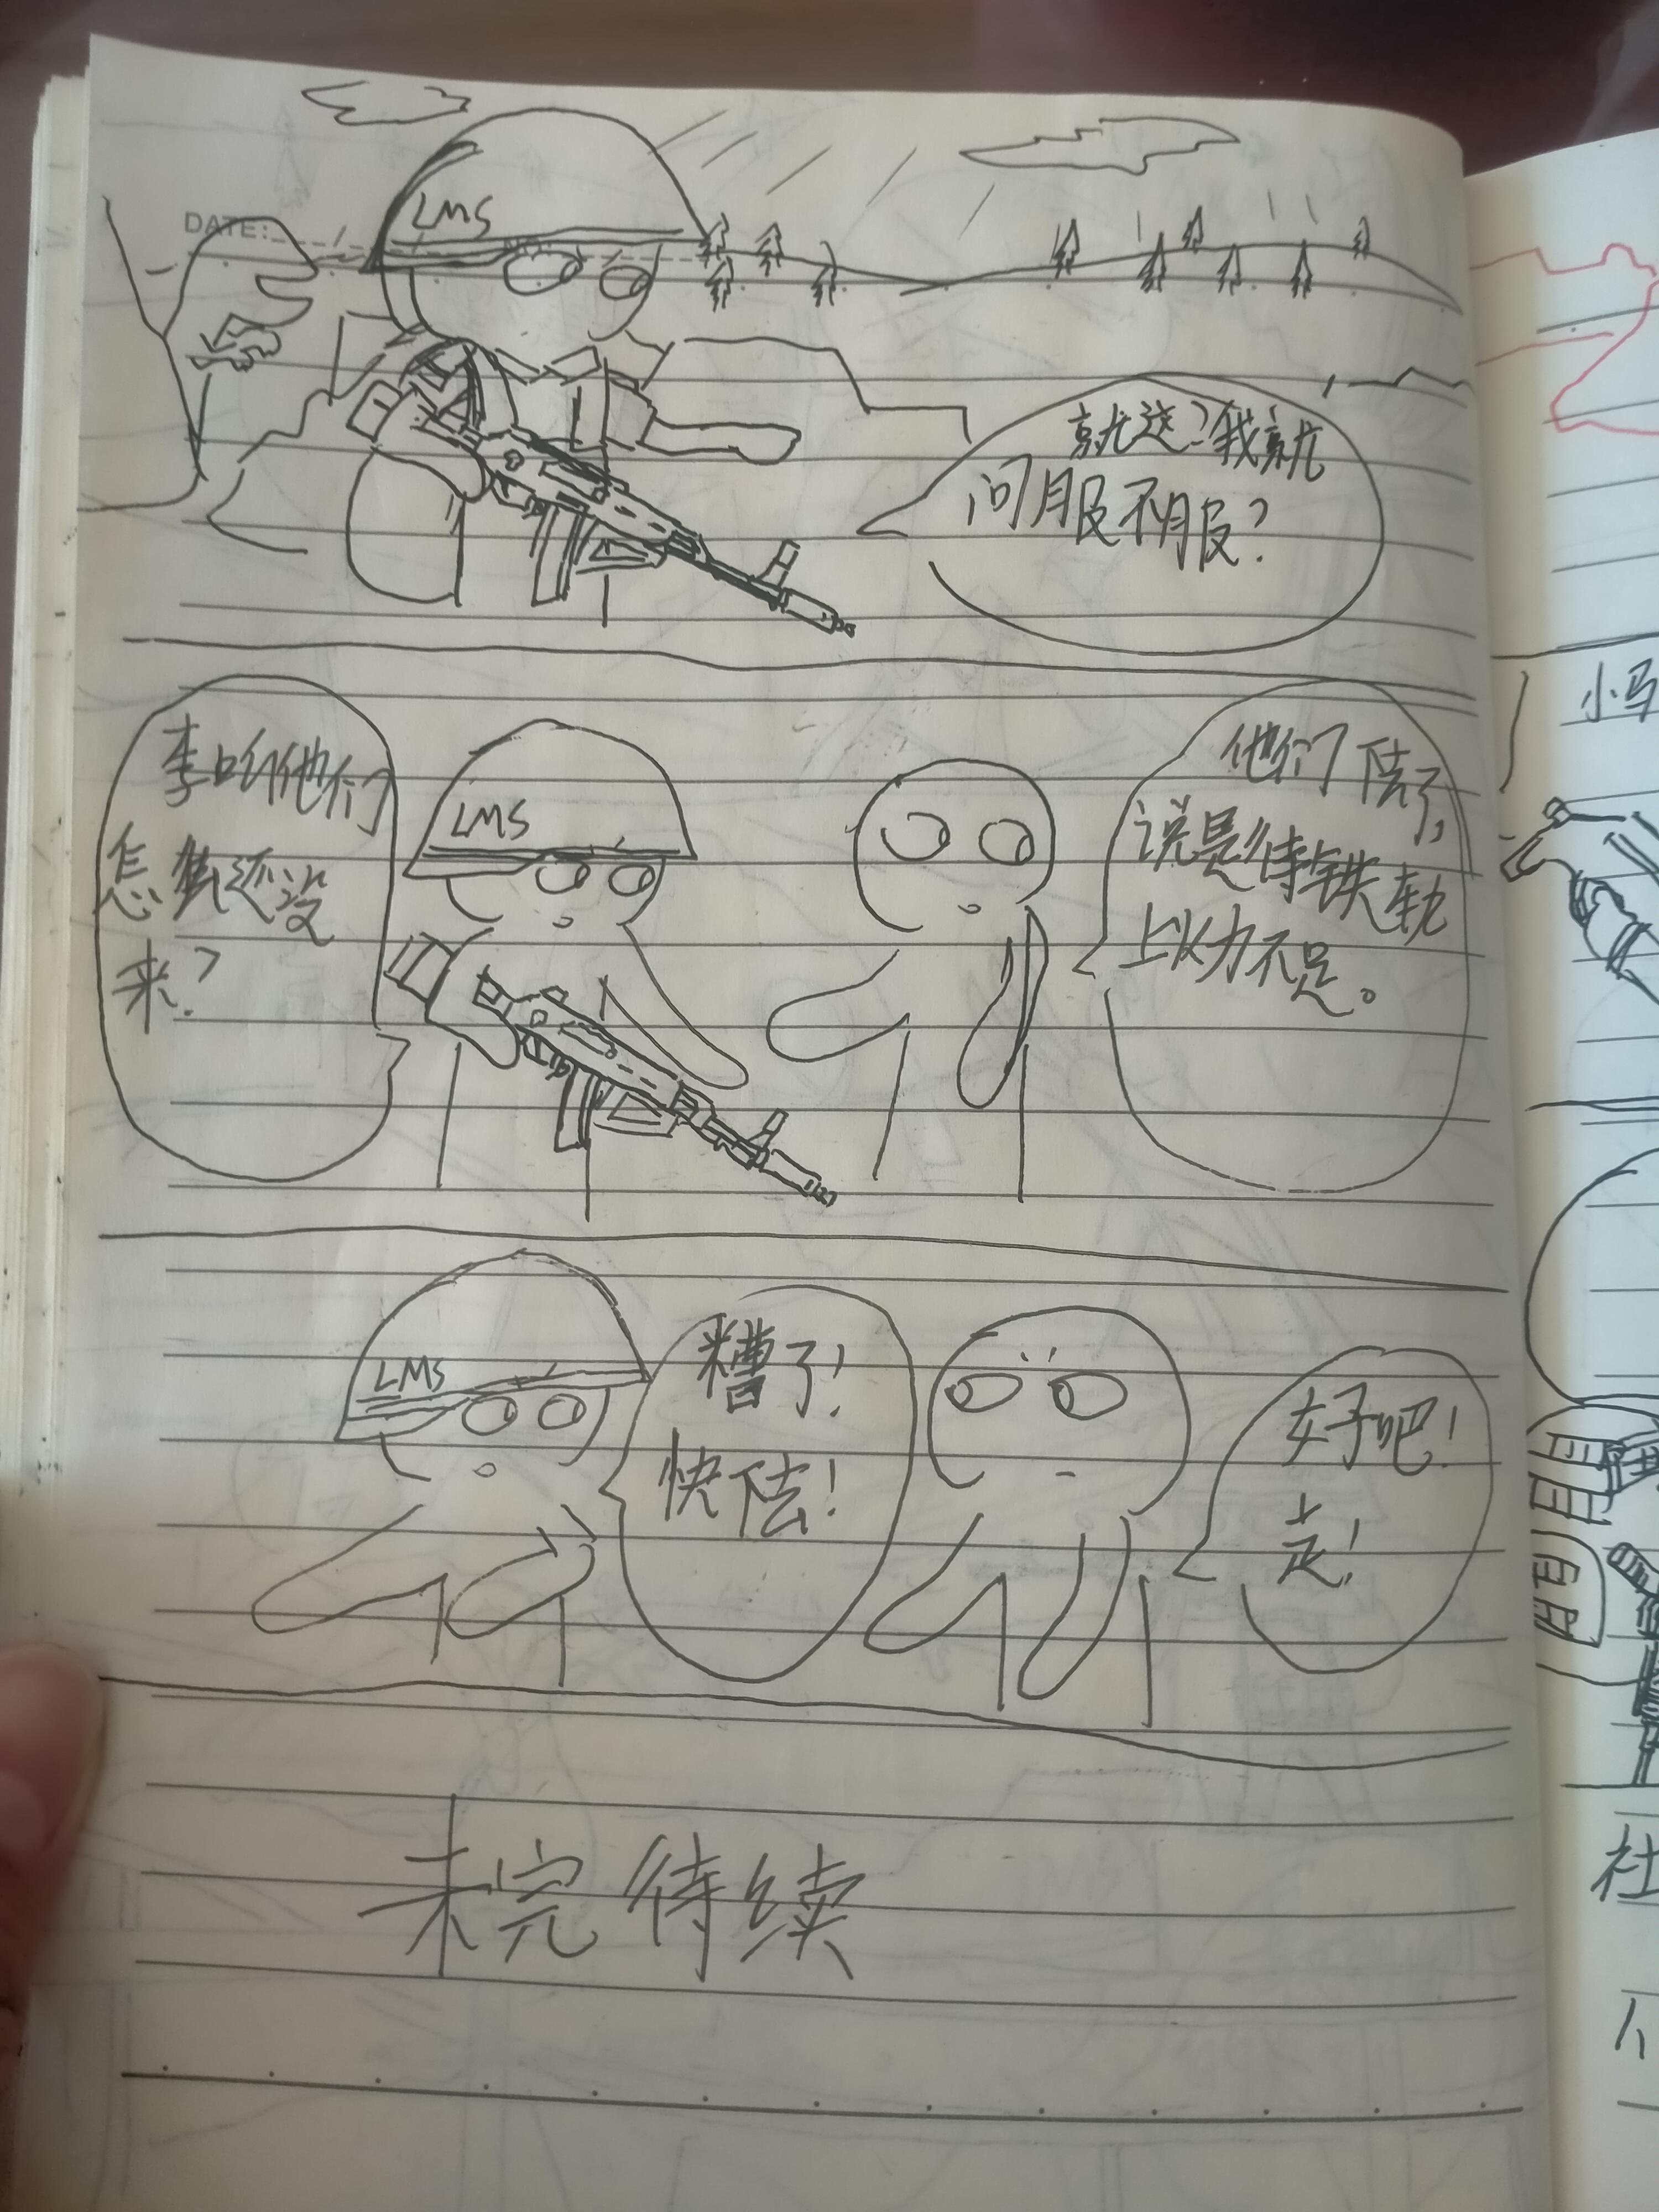 DATE:
LMS
就这?我就
问服不服?
李叫他们
怎么还没
来?
LMS
他们下去了,
说是待铁轨
上火力不足。
LMS
糟了!
快下去!
好吧!
走!
未完待续
小马
社